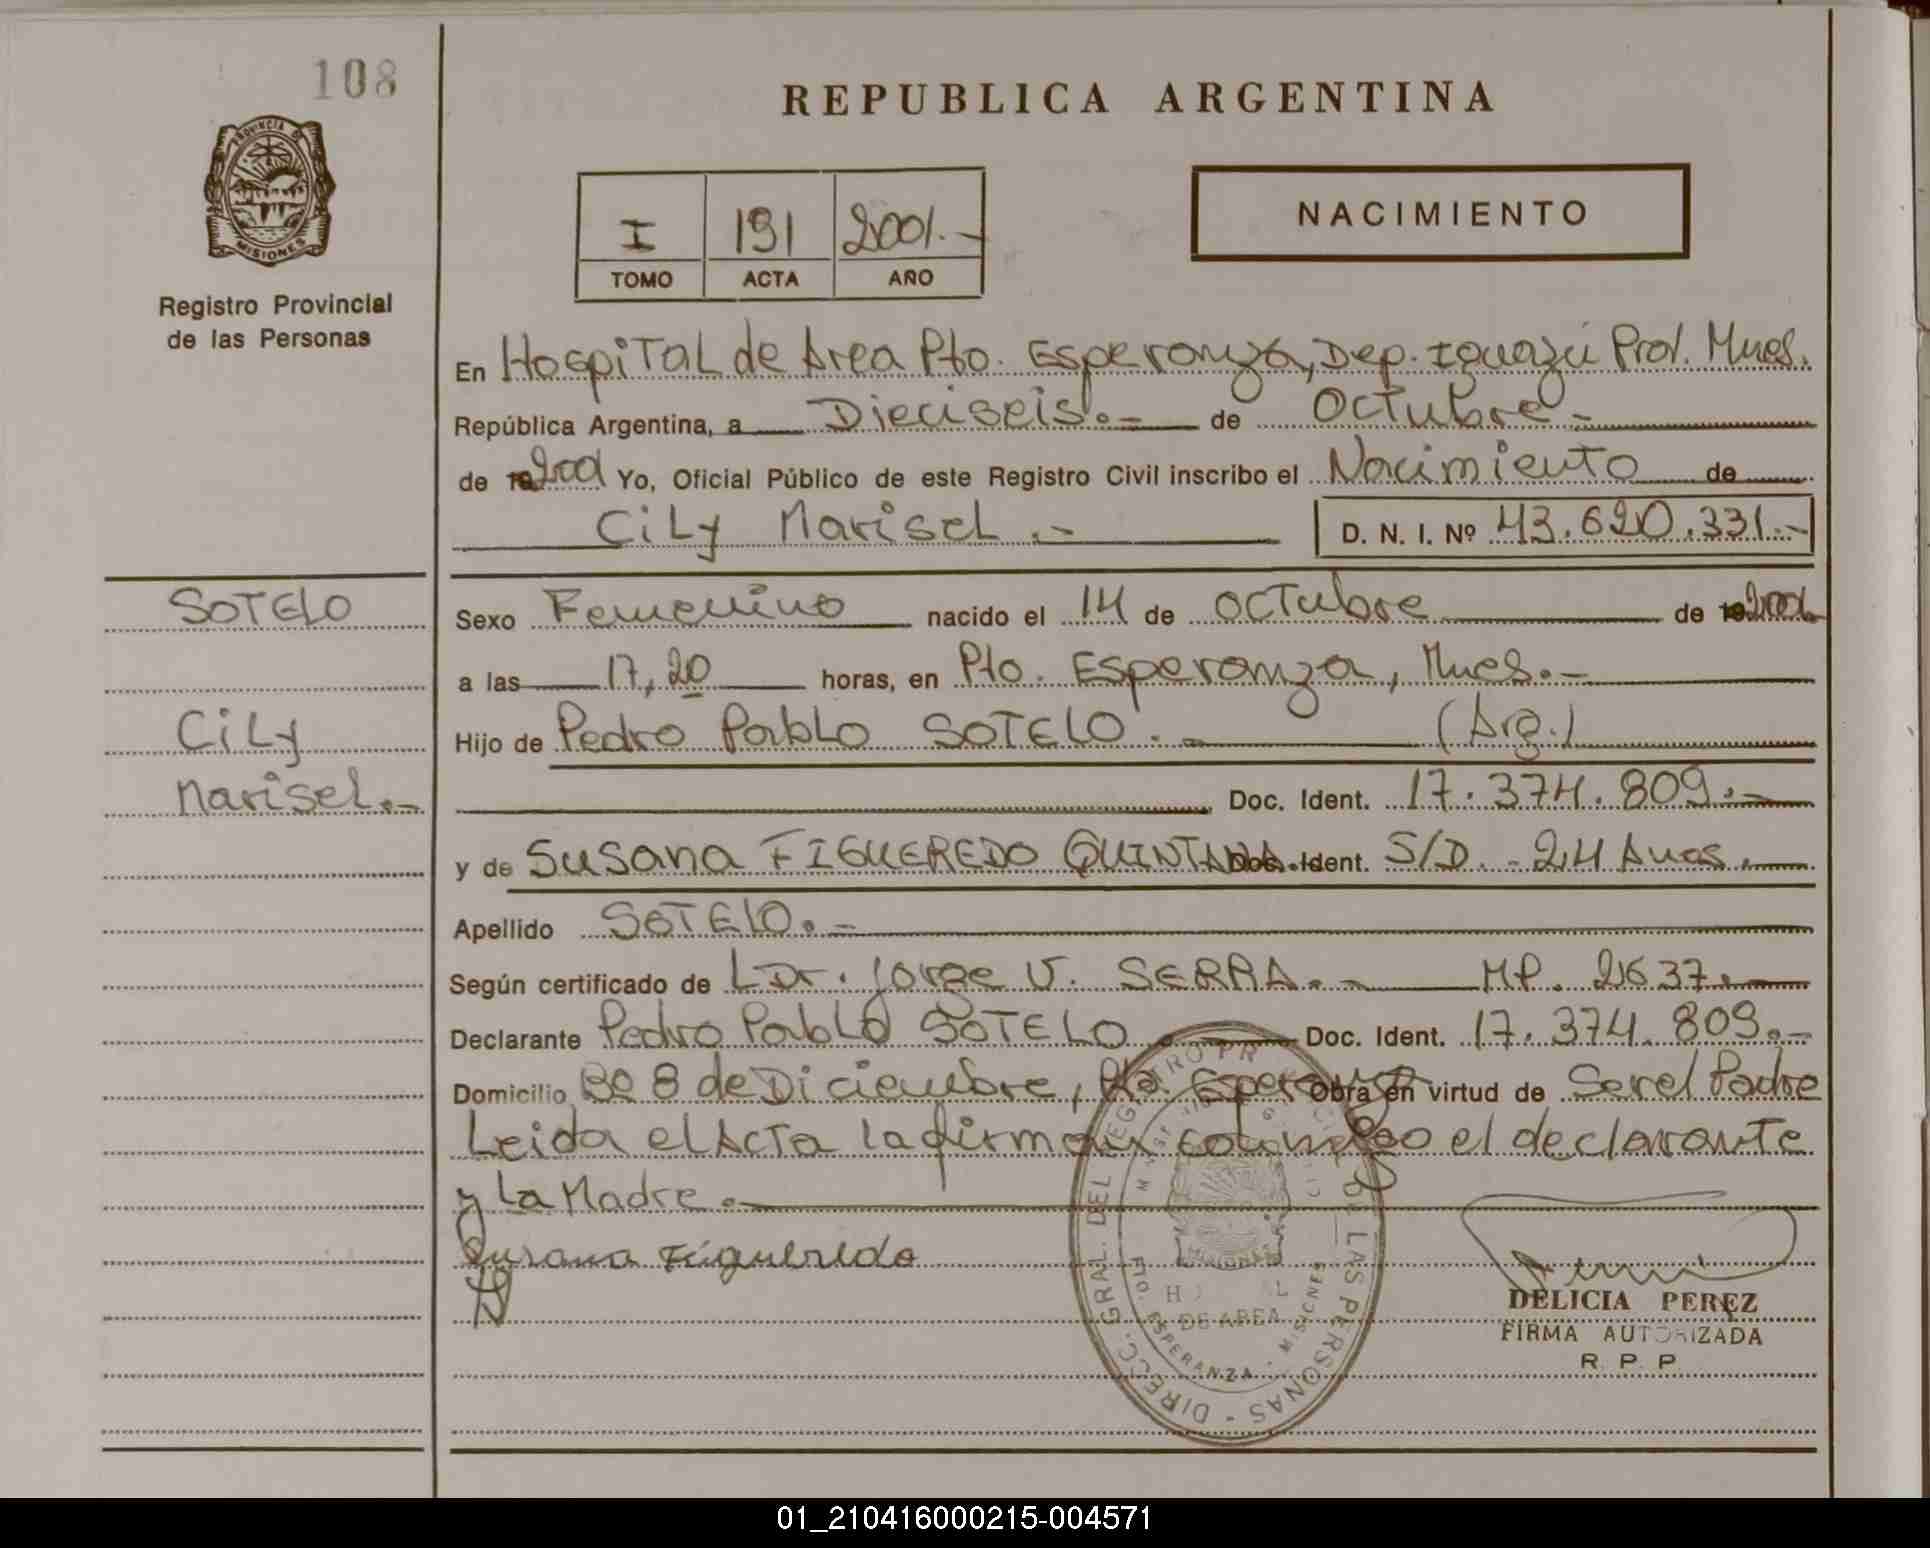 108
PROVINCIA DE
MISIONES
Registro Provincial
de las Personas
REPUBLICA ARGENTINA
I 191 2001.-
TOMO ACTA AÑO
NACIMIENTO
En Hospital de Area Pto. Esperanza, Dep. Iguazú Prov. Mnes.
República Argentina, a Dieciseis.- de Octubre.-
de 192001 Yo, Oficial Público de este Registro Civil inscribo el Nacimiento de
CiLy Marisel.-
D. N. I. Nº 43.620.331.-
SOTELO
CiLy
Marisel.-
Sexo Femenino nacido el 14 de octubre de 192001
a las 17,20 horas, en Pto. Esperanza, Mnes.-
Hijo de Pedro Pablo SOTELO.- (Arg.)
Doc. Ident. 17.374.809.-
y de Susana FIGUEREDO QUINTANA. Doc. Ident. S/D.- 24 Años.
Apellido SOTELO.-
Según certificado de Dr. Jorge V. SERRA.- MP. 2637.-
Declarante Pedro Pablo SOTELO.- Doc. Ident. 17.374.809.-
Domicilio Bº 8 de Diciembre, Pto. Esperanza Obra en virtud de Ser el Padre
Leida el Acta la firman conmigo el declarante
y La Madre.-
Susana Figueredo
DIRECC. GRAL. DEL REGISTRO PR CI DE LAS PERSONAS
MISIONES
DE AREA
PTO. ESPERANZA - MISIONES
DELICIA PEREZ
FIRMA AUTORIZADA
R. P. P.
01_210416000215-004571